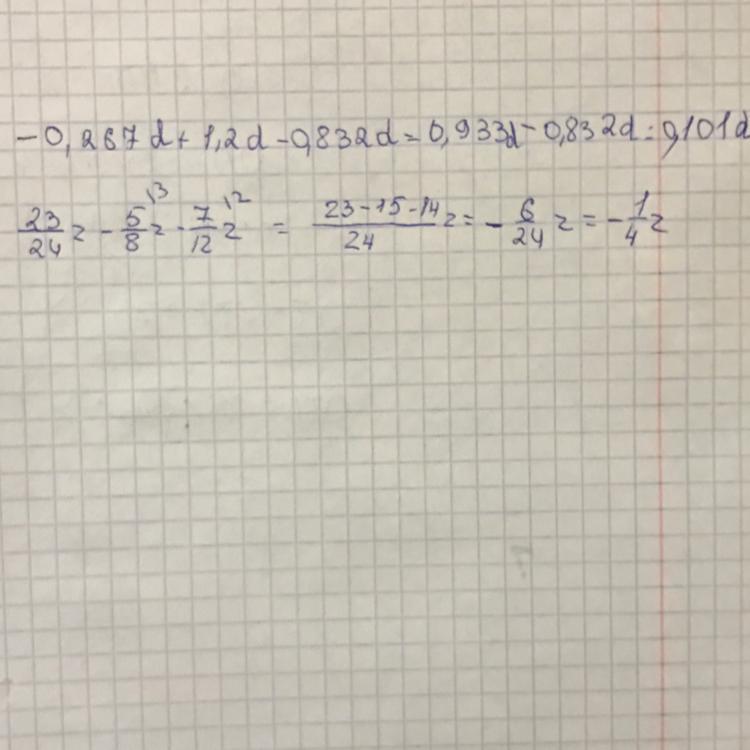 -0,267d + 1,2d - 0,832d = 0,933d - 0,832d = 0,101d
23/24 z - 5\3/8 z - 7\2/12 z = (23-15-14)/24 z = - 6/24 z = - 1/4 z